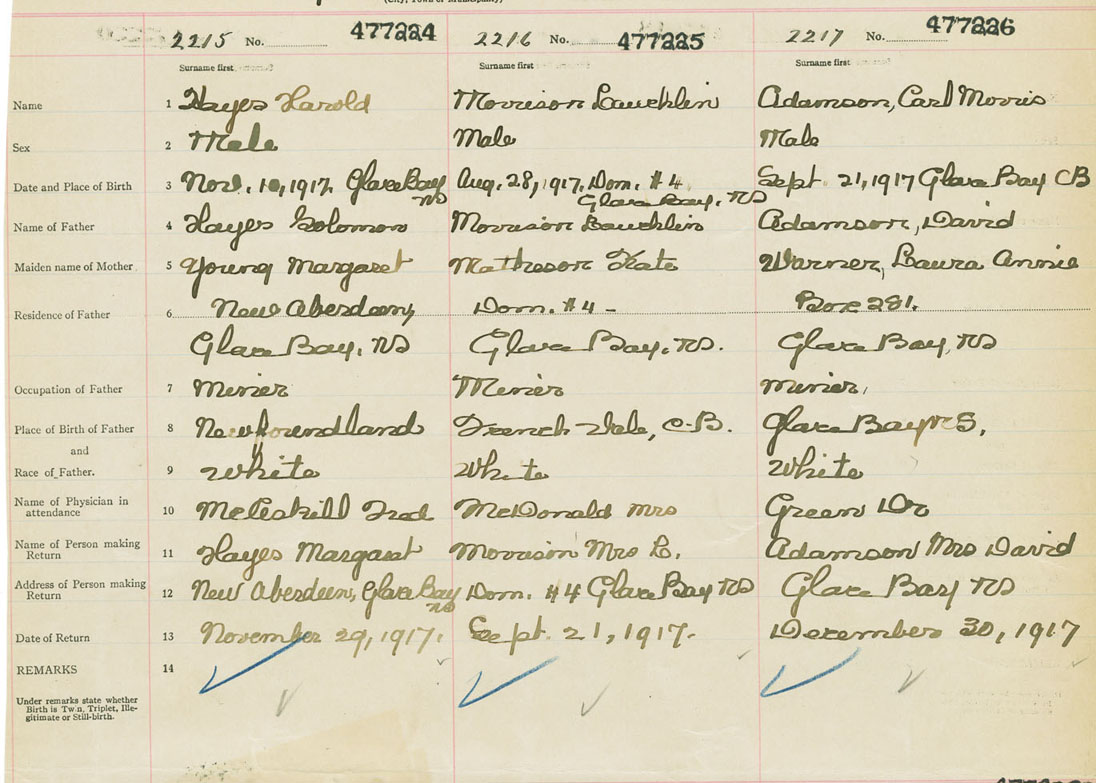 (City, Town or Municipality)
2215 No. 477224 2216 No. 477225 2217 No. 477226
Surname first Surname first Surname first
Name 1 Hayes Harold Morrison Lauchlin Adamson, Carl Morris
Sex 2 Male Male Male
Date and Place of Birth 3 Nov. 10, 1917. Glace Bay NS Aug. 28, 1917. Dom. #4 Glace Bay, NS Sept. 21, 1917 Glace Bay CB
Name of Father 4 Hayes Solomon Morrison Lauchlin Adamson, David
Maiden name of Mother 5 Young Margaret Matheson Kate Warner, Laura Annie
Residence of Father 6 New Aberdeen, Dom. #4 - Box 281.
Glace Bay, NS Glace Bay, NS. Glace Bay, NS
Occupation of Father 7 Miner Miner Miner,
Place of Birth of Father 8 Newfoundland French Vale, C-B. Glace Bay NS,
and
Race of Father. 9 White White White
Name of Physician in attendance 10 McCaskill Fred McDonald Mrs Green Dr
Name of Person making Return 11 Hayes Margaret Morrison Mrs L. Adamson Mrs David
Address of Person making Return 12 New Aberdeen, Glace Bay NS Dom. #4 Glace Bay NS Glace Bay NS
Date of Return 13 November 29, 1917. Sept. 21, 1917. December 30, 1917
REMARKS 14
Under remarks state whether
Birth is Twin, Triplet, Ille-
gitimate or Still-birth.